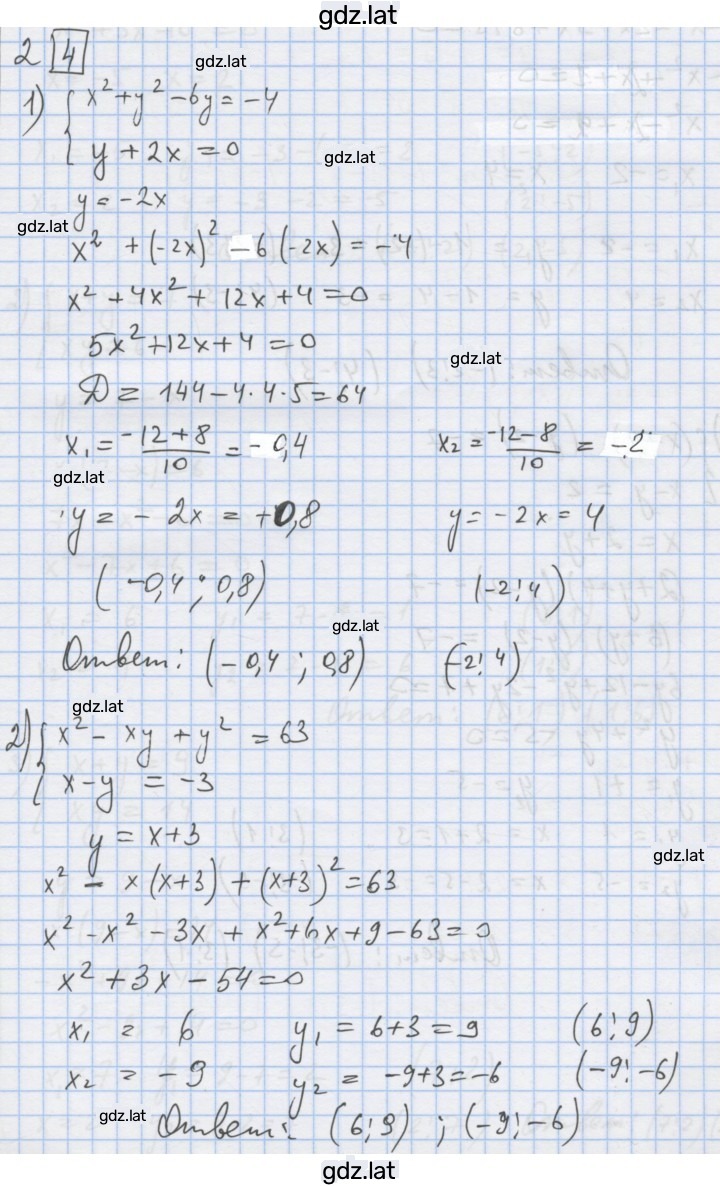 gdz.lat
2 4
gdz.lat
1) { x² + y² - 6y = -4
y + 2x = 0
gdz.lat
y = -2x
gdz.lat
x² + (-2x)² - 6(-2x) = -4
x² + 4x² + 12x + 4 = 0
5x² + 12x + 4 = 0
gdz.lat
D = 144 - 4·4·5 = 64
x₁ = (-12+8)/10 = -0,4 x₂ = (-12-8)/10 = -2
gdz.lat
y = -2x = +0,8 y = -2x = 4
(-0,4; 0,8) (-2; 4)
gdz.lat
Ответ: (-0,4; 0,8) (-2; 4)
gdz.lat
2) { x² - xy + y² = 63
x - y = -3
y = x+3
gdz.lat
x² - x(x+3) + (x+3)² = 63
x² - x² - 3x + x² + 6x + 9 - 63 = 0
x² + 3x - 54 = 0
x₁ = 6 y₁ = 6+3 = 9 (6; 9)
x₂ = -9 y₂ = -9+3 = -6 (-9; -6)
gdz.lat
Ответ: (6; 9) ; (-9; -6)
gdz.lat